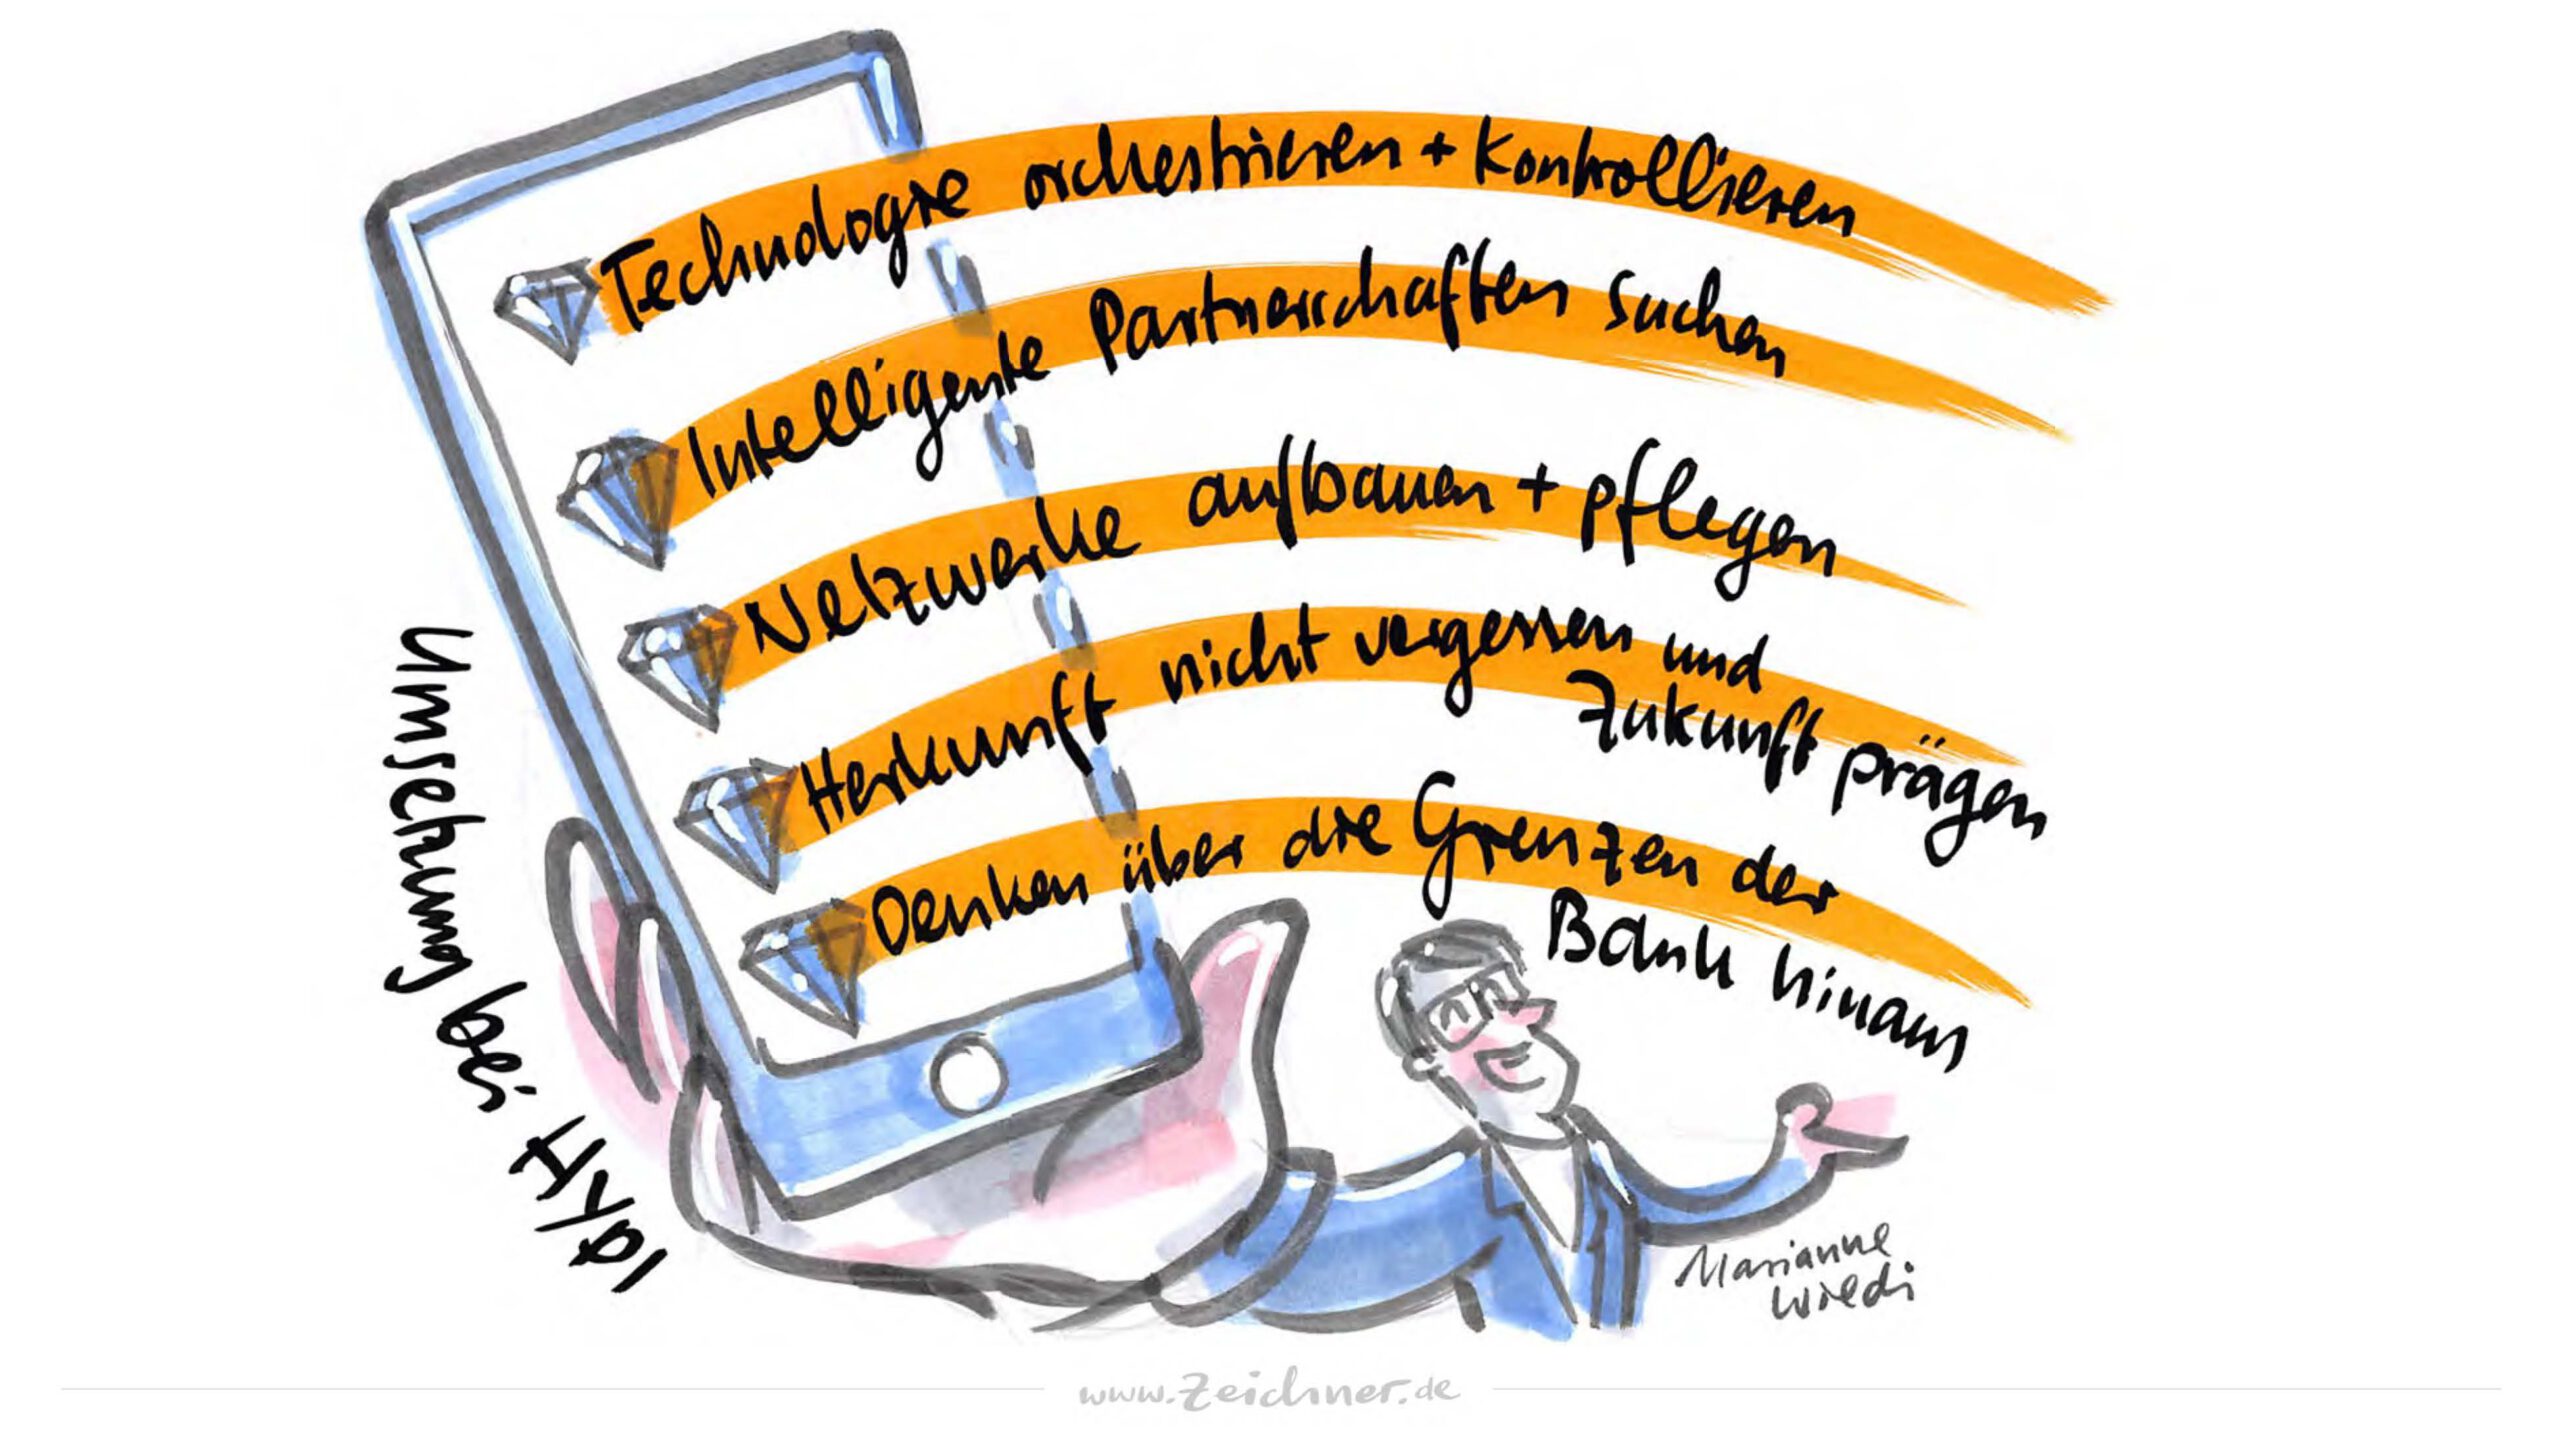 Technologie orchestrieren + Kontrollieren
Intelligente Partnerschaften suchen
Netzwerke aufbauen + pflegen
Herkunft nicht vergessen und
Zukunft prägen
Denken über die Grenzen der
Bank hinaus
Umsetzung bei Hypo
Marianne
Wiedi
www.Zeichner.de